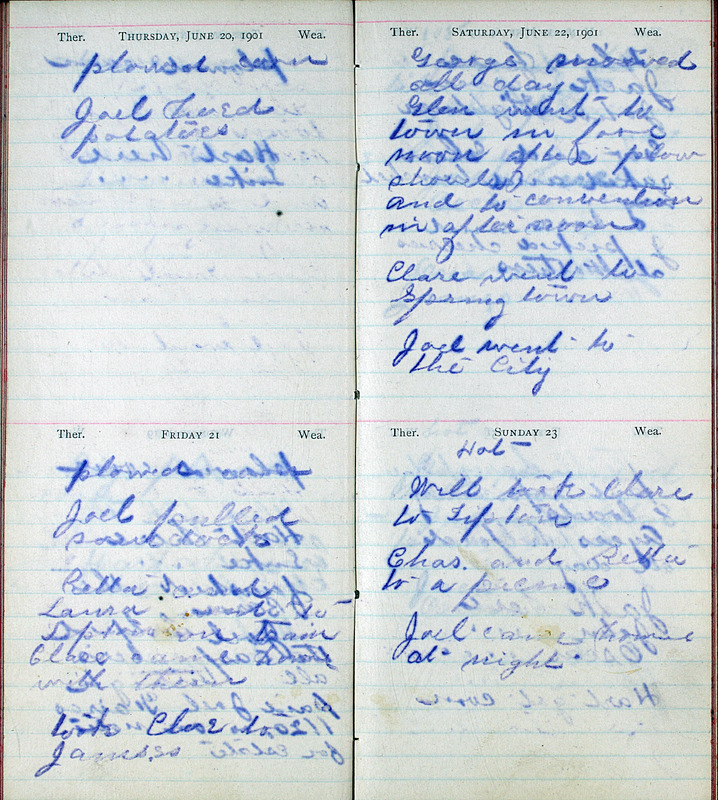 Ther. THURSDAY, JUNE 20, 1901 Wea.
plowed corn
Joel hoed
potatoes
Ther. FRIDAY 21 Wea.
plowed
Joel pulled
sourdock
Retta and
Laura went to
Tipton on train
Clare came
with them
took Clare to
James.s
Ther. SATURDAY, JUNE 22, 1901 Wea.
George mowed
all day
Glen went to
town in fore
noon after plow
shovels
and to convention
in afternoon
Clare went to
Spring town
Joel went to
the City
Ther. SUNDAY 23 Wea.
Hot
Will took Clare
to Tipton
Chas. and Retta
to a picnic
Joel came home
at night